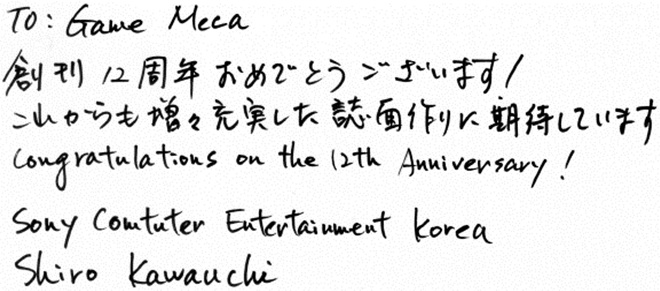 To: Game Meca
創刊12周年おめでとうございます!
これからも増々充実した誌面作りに期待しています
Congratulations on the 12th Anniversary!
Sony Comtuter Entertainment Korea
Shiro Kawauchi